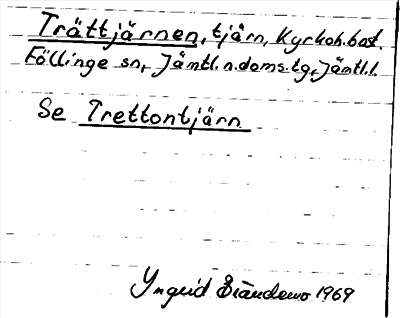 Trättjärnen, tjärn, Kyrkoh.bost.
Föllinge sn, Jämtl.n.doms.tg, Jämtl.l.
Se Trettontjärn
Yngrid 1969